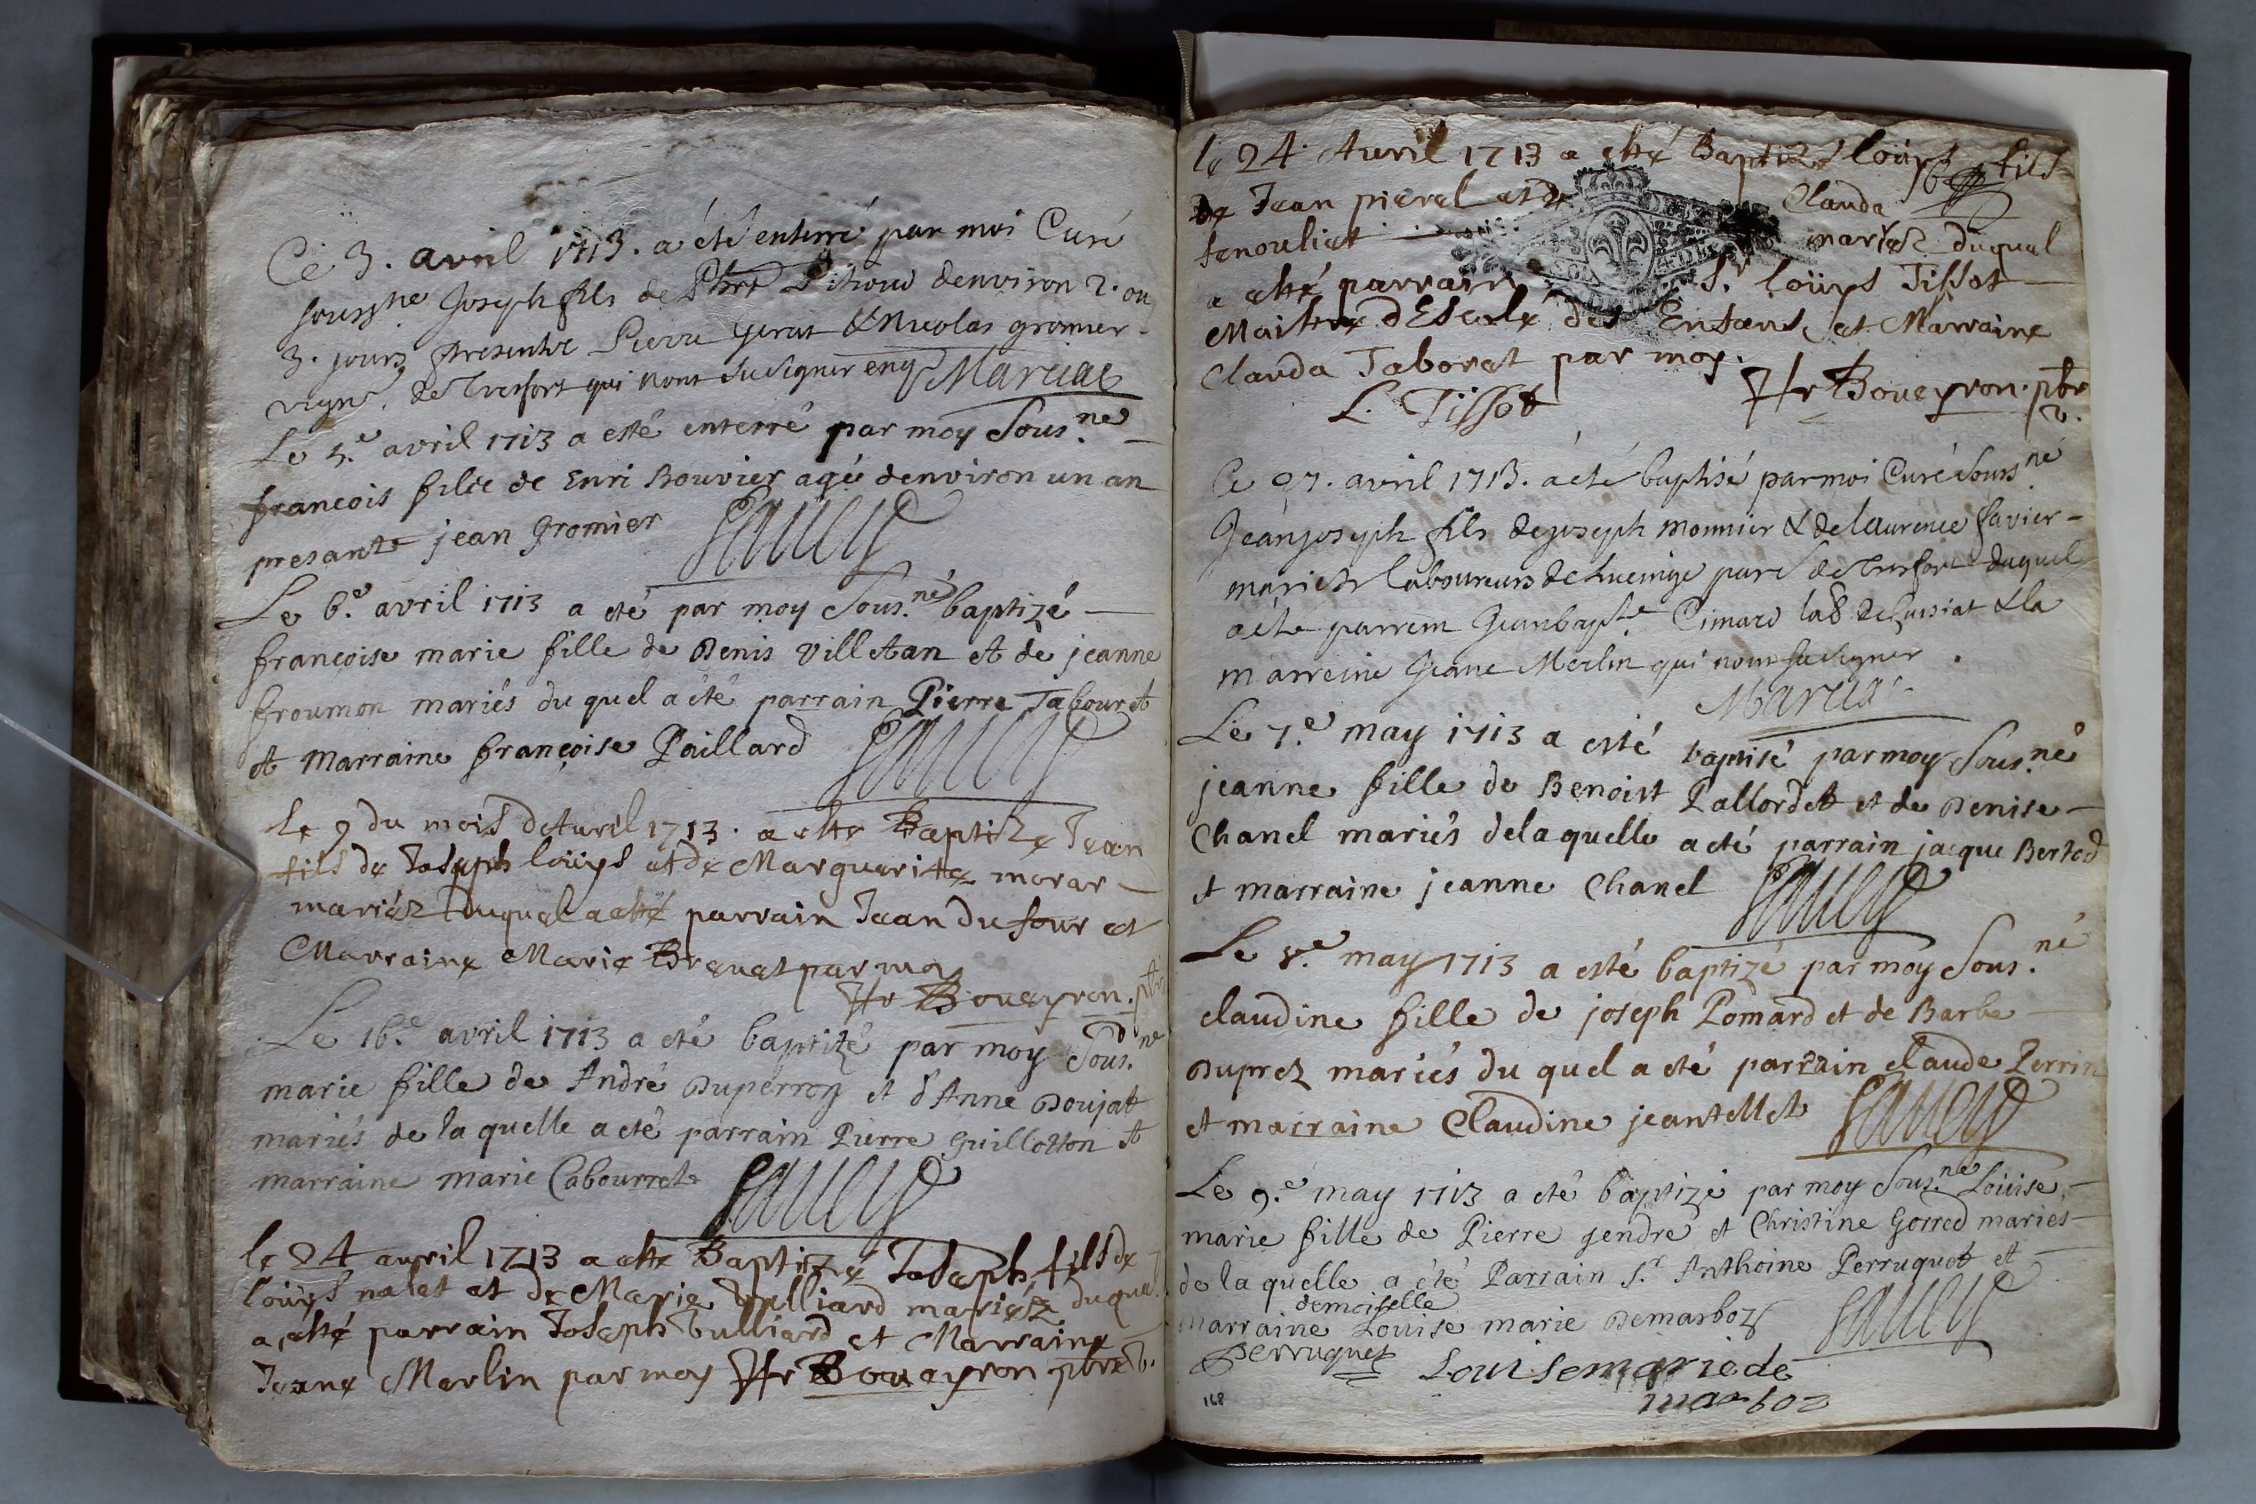 Ce 3. avril 1713. a été enterré par moi Curé
soussne Joseph fils de denviron 2. ou
3. jours presentz Pierre & Nicolas gromier
vign. de Tresfort qui nont su signer enqs Marciat
Le 5.e avril 1713 a esté enterré par moy Sous.né
françois filie de Enri Bouvier agé denviron un an
presante jean Gromier
Le 6.e avril 1713 a eté par moy Sous.né baptizé
françoise marie fille de Denis Villetan et de jeanne
froumon mariés du quel a été parrain Pierre Tabouret
et marraine françoise Paillard
Le 9 du mois d'Avril 1713. a esté Baptizé Jean
fils de Joseph loüys et de Marguerite morar
mariéz duquel a esté parrain Jean Dufour et
Marraine Marie Brevet par moy
Hr Boueyron. pbr
Le 16.e avril 1713 a eté baptizé par moy Sous.né
marie fille de André Duperroy et d'Anne Doujat
mariés de la quelle a eté parrain Pierre Guillotton et
marraine marie Cabourret
le 24 avril 1713 a esté Baptizé Joseph fils de
loüys nalet et de Marie Julliard mariéz duquel
a esté parrain Joseph Julliard et Marraine
Jeane Merlin par moy Hr Boueyron pbre v.
le 24. Avril 1713 a esté Baptizé loüys fils
de Jean pierel et de Clauda
fenouliet mariéz duquel
a esté parrain Sr. loüys Tissot
Maitre d'Escole des Enfans et Marraine
Clauda Taboret par moy.
L. Tissot Hr Boueyron. pbr
v.
Ce 27. avril 1713. a été baptisé par moi Curé Souss.né
Jean joseph fils de joseph monnier & de laurence favier
mariés laboureurs de Lucinge par. de Tresfort duquel
a été parrein Jean bapte. Cimard lab. de Cuisiat & la
marreine Jeane Merlin qui nont su signer.
Marciat
Le 7.e may 1713 a esté baptisé par moy Sous.né
jeanne fille de Benoist Pallordet et de Denise
Chanel mariés dela quelle a eté parrain jacque Bertod
et marraine jeanne Chanel
Le 8.e may 1713 a esté baptizé par moy Sous.né
claudine fille de joseph Pomard et de Barbe
Duprez mariés du quel a eté parrain claude Perrin
et marraine Claudine jeantellet
Le 9.e may 1713 a eté baptizé par moy Sous.né Loüise
marie fille de Pierre gendre et Christine Gorred mariés
de la quelle a été Parrain S.r Anthoine Perruquot et
demoiselle
marraine Loüise marie Demarboz
Perruquet Louise marie de
marboz
168